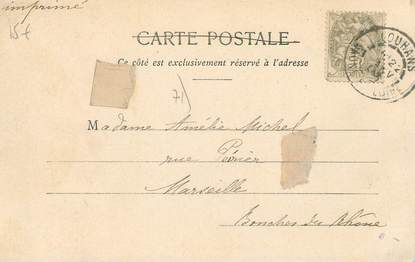 imprimé
15€
CARTE POSTALE
Ce côté est exclusivement réservé à l'adresse
71
LOUHANS
LOIRE
Madame Amélie Michel
rue Périer
Marseille
Bouches du Rhône